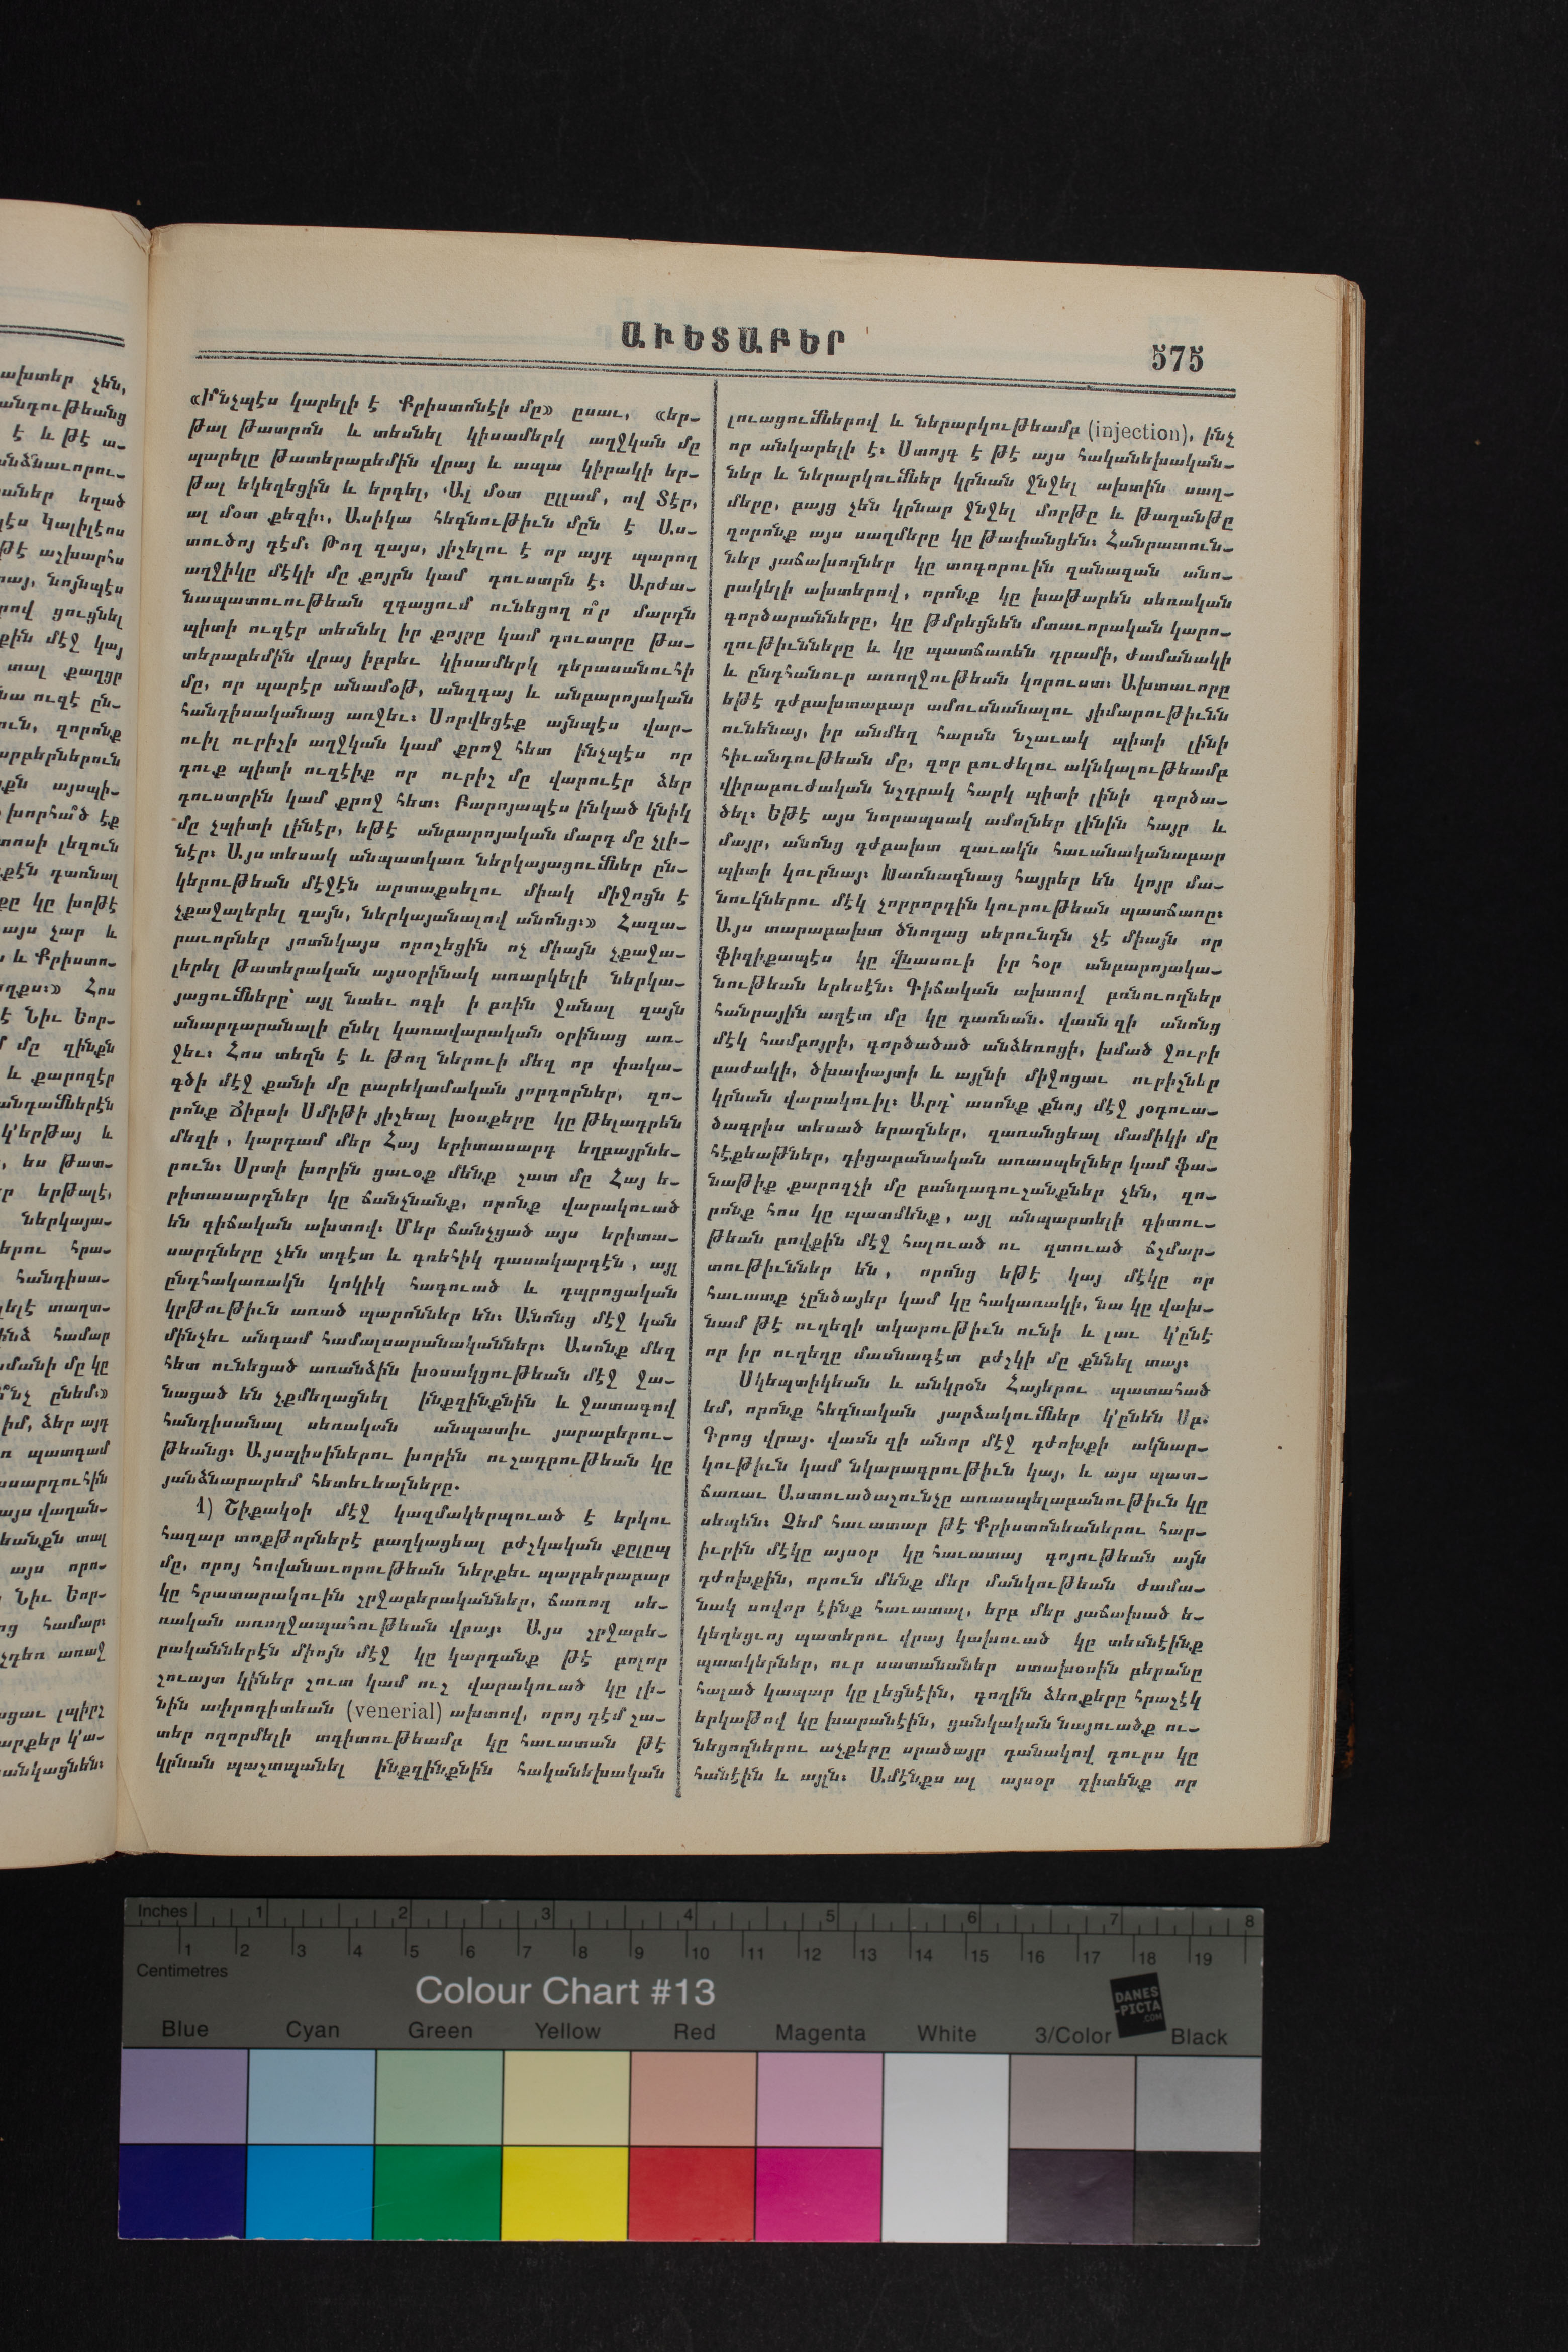 ԱՒԵՏԱԲԵՐ
575
«Ի՞նչպէս կարելի է Քրիստոնէի մը» ըսաւ, «եր-
թալ թատրոն և տեսնել կիսամերկ աղջկան մը
պարելը թատերաբեմին վրայ և ապա կիրակի եր-
թալ եկեղեցին և երգել, Ալ մօտ ըլլամ, ով Տէր,
ալ մօտ քեզի։, Ասիկա հեգնութիւն մըն է Աս-
տուծոյ դէմ։ Թող զայս, յիշելու է որ այդ պարող
աղջիկը մէկի մը քոյրն կամ դուստրն է։ Արժա-
նապատուութեան զգացում ունեցող ո՞ր մարդն
պիտի ուզէր տեսնել իր քոյրը կամ դուստրը թա-
տերաբեմին վրայ իբրեւ կիսամերկ դերասանուհի
մը, որ պարէր անամօթ, անզգայ և անբարոյական
հանդիսականաց առջեւ։ Սորվեցէք այնպէս վար-
ուիլ ուրիշի աղջկան կամ քրոջ հետ ինչպէս որ
դուք պիտի ուզէիք որ ուրիշ մը վարուէր ձեր
դուստրին կամ քրոջ հետ։ Բարոյապէս ինկած կնիկ
մը չպիտի լինէր, եթէ անբարոյական մարդ մը չլի-
նէր։ Այս տեսակ անպատկառ ներկայացումներ ըն-
կերութեան մէջէն արտաքսելու միակ միջոցն է
չքաջալերել զայն, ներկայանալով անոնց։» Հազա-
րաւորներ յոտնկայս որոշեցին ոչ միայն չքաջա-
լերել թատերական այսօրինակ առարկելի ներկա-
յացումները՝ այլ նաեւ ոգի ի բռին ջանալ զայն
անարդարանալի ընել կառավարական օրինաց առ-
ջեւ։ Հոս տեղն է և թող ներուի մեզ որ փակա-
գծի մէջ քանի մը բարեկամական յորդորներ, զո-
րոնք Ճիրսի Սմիթի յիշեալ խօսքերը կը թելադրեն
մեզի, կարդամ մեր Հայ երիտասարդ եղբայրնե-
րուն։ Սրտի խորին ցաւօք մենք շատ մը Հայ ե-
րիտասարդներ կը ճանչնանք, որոնք վարակուած
են գիճական ախտով։ Մեր ճանչցած այս երիտա-
սարդները չեն տգէտ և գռեհիկ դասակարգէն, այլ
ընդհակառակն կոկիկ հագուած և դպրոցական
կրթութիւն առած պարոններ են։ Անոնց մէջ կան
մինչեւ անգամ համալսարանականներ։ Ասոնք մեզ
հետ ունեցած առանձին խօսակցութեան մէջ ջա-
նացած են չքմեղացնել ինքզինքնին և ջատագով
հանդիսանալ սեռական անպատիւ յարաբերու-
թեանց։ Այսպիսիներու խորին ուշադրութեան կը
յանձնարարեմ հետեւեալները.
1) Շիքակօի մէջ կազմակերպուած է երկու
հազար տոքթորներէ բաղկացեալ բժշկական քըլըպ
մը, որոյ հովանաւորութեան ներքեւ պարբերաբար
կը հրատարակուին շրջաբերականներ, ճառող սե-
ռական առողջապահութեան վրայ։ Այս շրջաբե-
րականներէն միոյն մէջ կը կարդանք թէ բոլոր
շուայտ կիներ շուտ կամ ուշ վարակուած կը լի-
նին ափրոդիտեան (venerial) ախտով, որոյ դէմ շա-
տեր ողորմելի տգիտութեամբ կը հաւատան թէ
կրնան պաշտպանել ինքզինքնին հականեխական
լուացումներով և ներարկութեամբ (injection), ինչ
որ անկարելի է։ Ստոյգ է թէ այս հականեխական-
ներ և ներարկումներ կրնան ջնջել ախտին սաղ-
մերը, բայց չեն կրնար ջնջել մորթը և թաղանթը
զորոնք այս սաղմերը կը թափանցեն։ Հանրատուն-
ներ յաճախողներ կը տոգորուին զանազան անո-
րակելի ախտերով, որոնք կը խաթարեն սեռական
գործարանները, կը թմրեցնեն մտաւորական կարո-
ղութիւնները և կը պատճառեն դրամի, ժամանակի
և ընդհանուր առողջութեան կորուստ։ Ախտաւորը
եթէ դժբախտաբար ամուսնանալու յիմարութիւնն
ունենայ, իր անմեղ հարսն նշաւակ պիտի լինի
հիւանդութեան մը, զոր բուժելու ակնկալութեամբ
վիրաբուժական նշդրակ հարկ պիտի լինի գործա-
ծել։ Եթէ այս նորապսակ ամոլներ լինին հայր և
մայր, անոնց դժբախտ զաւակն հաւանականաբար
պիտի կուրնայ։ Խառնագնաց հայրեր են կոյր մա-
նուկներու մէկ չորրորդին կուրութեան պատճառը։
Այս տարաբախտ ծնողաց սերունդն չէ միայն որ
ֆիզիքապէս կը վնասուի իր հօր անբարոյակա-
նութեան երեսէն։ Գիճական ախտով բռնուողներ
հանրային աղէտ մը կը դառնան. վասն զի անոնց
մէկ համբոյրի, գործածած անձեռոցի, խմած ջուրի
բաժակի, ծխափայտի և այլնի միջոցաւ ուրիշներ
կրնան վարակուիլ։ Արդ՝ ասոնք քնոյ մէջ յօդուա-
ծագրիս տեսած երազներ, զառանցեալ մամիկի մը
հէքեաթներ, դիցաբանական առասպելներ կամ ֆա-
նաթիք քարոզչի մը բանդագուշանքներ չեն, զո-
րոնք հոս կը պատմենք, այլ անպարտելի գիտու-
թեան բովքին մէջ հալուած ու զտուած ճշմար-
տութիւններ են, որոնց եթէ կայ մէկը որ
հաւատք չընծայեր կամ կը հակառակի, նա կը վախ-
նամ թէ ուղեղի տկարութիւն ունի և լաւ կ՚ընէ
որ իր ուղեղը մասնագէտ բժշկի մը քննել տայ։
Սկեպտիկեան և անկրօն Հայերու պատահած
եմ, որոնք հեգնական յարձակումներ կ՚ընեն Սբ.
Գրոց վրայ. վասն զի անոր մէջ դժոխքի ակնար-
կութիւն կամ նկարագրութիւն կայ, և այս պատ-
ճառաւ Աստուածաշունչը առասպելաբանութիւն կը
սեպեն։ Չեմ հաւատար թէ Քրիստոնեաներու հար-
իւրին մէկը այսօր կը հաւատայ գոյութեան այն
դժոխքին, որուն մենք մեր մանկութեան ժամա-
նակ սովոր էինք հաւատալ, երբ մեր յաճախած ե-
կեղեցւոյ պատերու վրայ կախուած կը տեսնէինք
պատկերներ, ուր սատանաներ ստախօսին բերանը
հալած կապար կը լեցնէին, գողին ձեռքերը հրաշէկ
երկաթով կը խարանէին, ցանկական նայուածք ու-
նեցողներու աչքերը սրածայր դանակով դուրս կը
հանէին և այլն։ Ամէնքս ալ այսօր գիտենք որ
Inches 1 2 3 4 5 6 7 8
1 2 3 4 5 6 7 8 9 10 11 12 13 14 15 16 17 18 19
Centimetres
Colour Chart #13
DANES
-PICTA
.COM
Blue Cyan Green Yellow Red Magenta White 3/Color Black